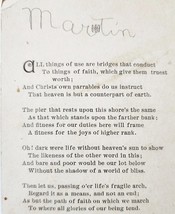 Martin
ALL things of use are bridges that conduct
To things of faith, which give them truest
worth;
And Christs own parables do us instruct
That heaven is but a counterpart of earth.
The pier that rests upon this shore's the same
As that which stands upon the farther bank;
And fitness for our duties here will frame
A fitness for the joys of higher rank.
Oh! dark were life without heaven's sun to show
The likeness of the other word in this;
And bare and poor would be our lot below
Without the shadow of a world of bliss.
Then let us, passing o'er life's fragile arch,
Regard it as a means, and not an end;
As but the path of faith on which we march
To where all glories of our being tend.